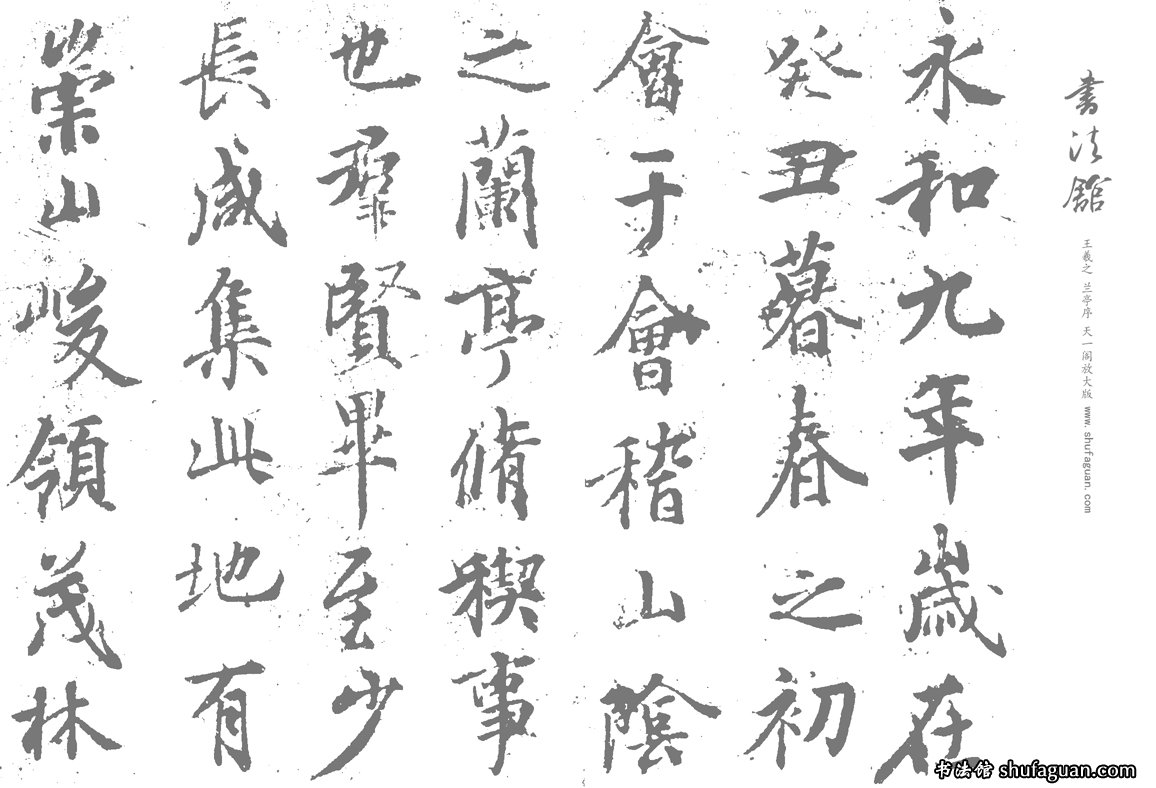 書法館
王羲之 兰亭序 天一阁放大版 www.shufaguan.com
永和九年歲在
癸丑暮春之初
會于會稽山陰
之蘭亭脩稧事
也羣賢畢至少
長咸集此地有
崇山峻領茂林
书法馆 shufaguan.com